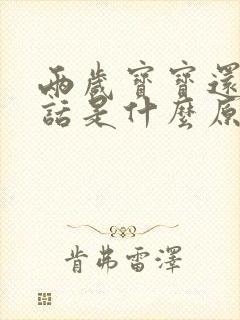 兩歲寶寶還
話是什麼原
肯弗雷澤